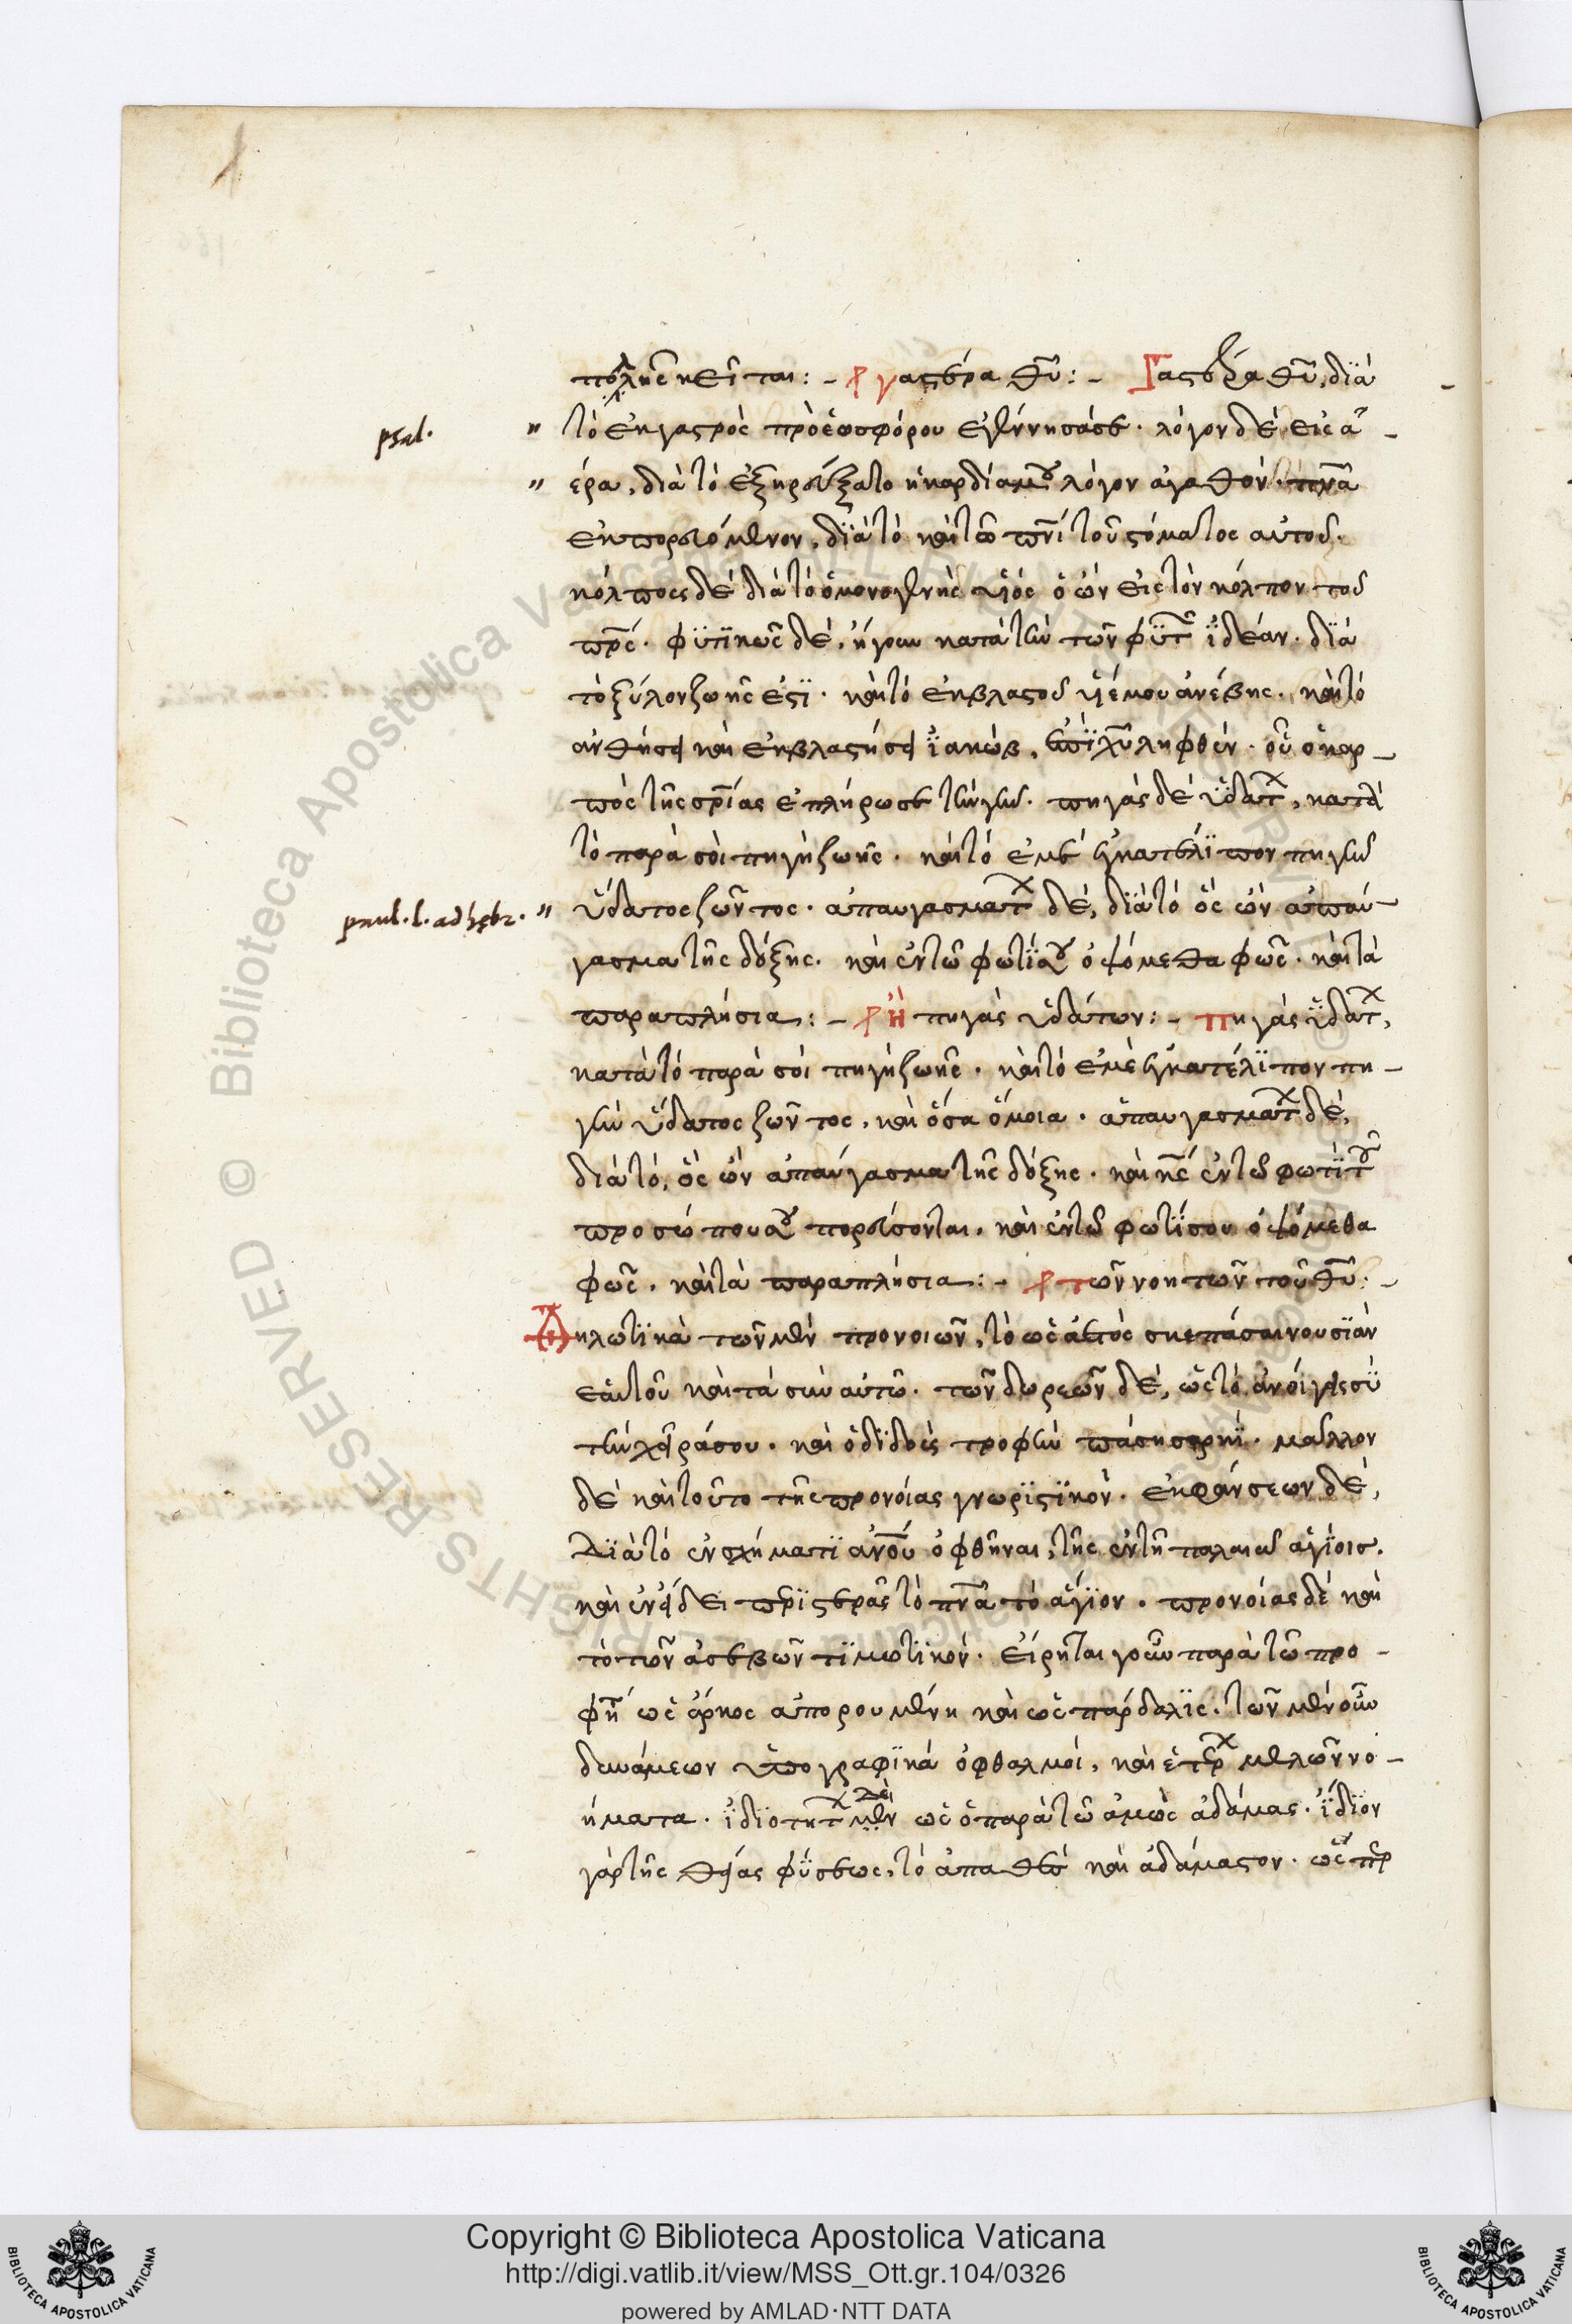 πολλῆς κεῖται :- γαστέρα θυ̅ :- Γαστέρα θυ̅, διὰ
psal. " τὸ ἐκ γαστρὸς πρὸ ἑωσφόρου ἐγέννησά σε. λόγον δὲ εἰς ἀ-
" έρα, διὰ τὸ ἐξηρεύξατο ἡ καρδία μου λόγον ἀγαθόν. πνα̅
ἐκπορευόμενον, διὰ τὸ καὶ τῶ πνι̅ τοῦ στόματος αὐτοῦ.
κόλπους δὲ διὰ τὸ ὁ μονογενὴς υἱὸς ὁ ὢν εἰς τὸν κόλπον τοῦ
πρς̅. φυτικῶς δὲ, ἤγουν κατὰ τὴν τῶν φυτ ἰδέαν. διὰ
τὸ ξύλον ζωῆς ἐστι. καὶ τὸ ἐκ βλαστοῦ υἱέ μου ἀνέβης. καὶ τὸ
ἀνθήσει καὶ ἐκβλαστήσει ἰακώβ, ἐπὶ χυ̅ ληφθέν. οὗ ὁ καρ-
πὸς τῆς σρίας ἐπλήρωσε τὴν γῆν. πηγὰς δὲ ὑδατ, κατὰ
τὸ παρὰ σοὶ πηγὴ ζωῆς. καὶ τὸ ἐμὲ ἐγκατέλιπον πηγὴν
paul. l. ad hebr. " ὕδατος ζῶντος. ἀπαυγασματ δὲ, διὰ τὸ ὃς ὢν ἀπαύ-
γασμα τῆς δόξης. καὶ ἐν τῶ φωτί ὀψόμεθα φῶς. καὶ τὰ
παραπλήσια :- Ἢ πηγὰς ὑδάτων :- πηγὰς ὑδατ,
κατὰ τὸ παρὰ σοὶ πηγὴ ζωῆς. καὶ τὸ ἐμὲ ἐγκατέλιπον πη-
γὴν ὕδατος ζῶντος, καὶ ὅσα ὅμοια. ἀπαυγασματ δὲ,
διὰ τὸ, ὃς ὢν ἀπαύγασμα τῆς δόξης. καὶ κε̅ ἐν τῶ φωτὶ τοῦ
προσώπου πορεύσονται. καὶ ἐν τῶ φωτί σου ὀψόμεθα
φῶς. καὶ τὰ παραπλήσια :- τῶν νοητῶν τοῦ θυ̅.-
Δηλωτικὰ τῶν μὲν προνοιῶν, τὸ ὡς ἀετὸς σκεπάσαι νοσσιὰν
ἑαυτοῦ καὶ τὰ σὺν αὐτῶ. τῶν δωρεῶν δὲ, ὡς τὸ ἀνοίγεις σὺ
τὴν χεῖρά σου. καὶ ὁ διδοὺς τροφὴν πάση σαρκί. μᾶλλον
δὲ καὶ τοῦτο τῆς προνοίας γνωριστικόν. ἐκφάνσεων δὲ,
Διὰ τὸ ἐν σχήματι ανου̅ ὀφθῆναι, τῆς ἐν τῆ παλαιᾶ ἁγίοις.
καὶ ἐν εἴδει περιστερᾶς τὸ πνα̅ τὸ ἅγιον. προνοίας δὲ καὶ
τὸ τῶν ἀσεβῶν τιμωτικόν. εἴρηται γοῦν παρὰ τῶ προ-
φη ὡς ἄρκος ἀπορουμένη καὶ ὡς πάρδαλις. τῶν μὲν οὖν
δυνάμεων ὑπογραφικὰ ὀφθαλμοὶ, καὶ ἑτερ μελῶν νο-
ήματα. ἰδιοτητ μὲν δὲ ὡς ὁ παρὰ τῶ ἀμὼς ἀδάμας. ἴδιον
γὰρ τῆς θείας φύσεως, τὸ ἀπαθὲς καὶ ἀδάμαστον. ὥσπερ
Copyright © Biblioteca Apostolica Vaticana
http://digi.vatlib.it/view/MSS_Ott.gr.104/0326
powered by AMLAD·NTT DATA